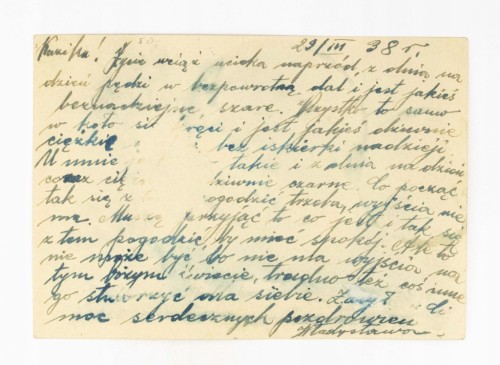 29/III 38 r.
Życie wciąż ucieka naprzód, z dnia na
dzień pędzi w bezpowrotną dal i jest jakieś
beznadziejne, szare. Wszystko to samo
w koło się kręci i jest jakieś dziwnie
ciężkie bez iskierki nadziei
U mnie takie i z dnia na dzień
coraz dziwnie czarne. Co począć
tak się z trzeba, wyjścia nie
ma. Muszę przyjąć to co jest i tak się
z tem pogodzić, by mieć spokój. A to
nie może być bo nie ma wyjścia na
tym bożym świecie, trudno też coś inne
go stworzyć dla siebie. Ci
moc serdecznych pozdrowień
Władysława